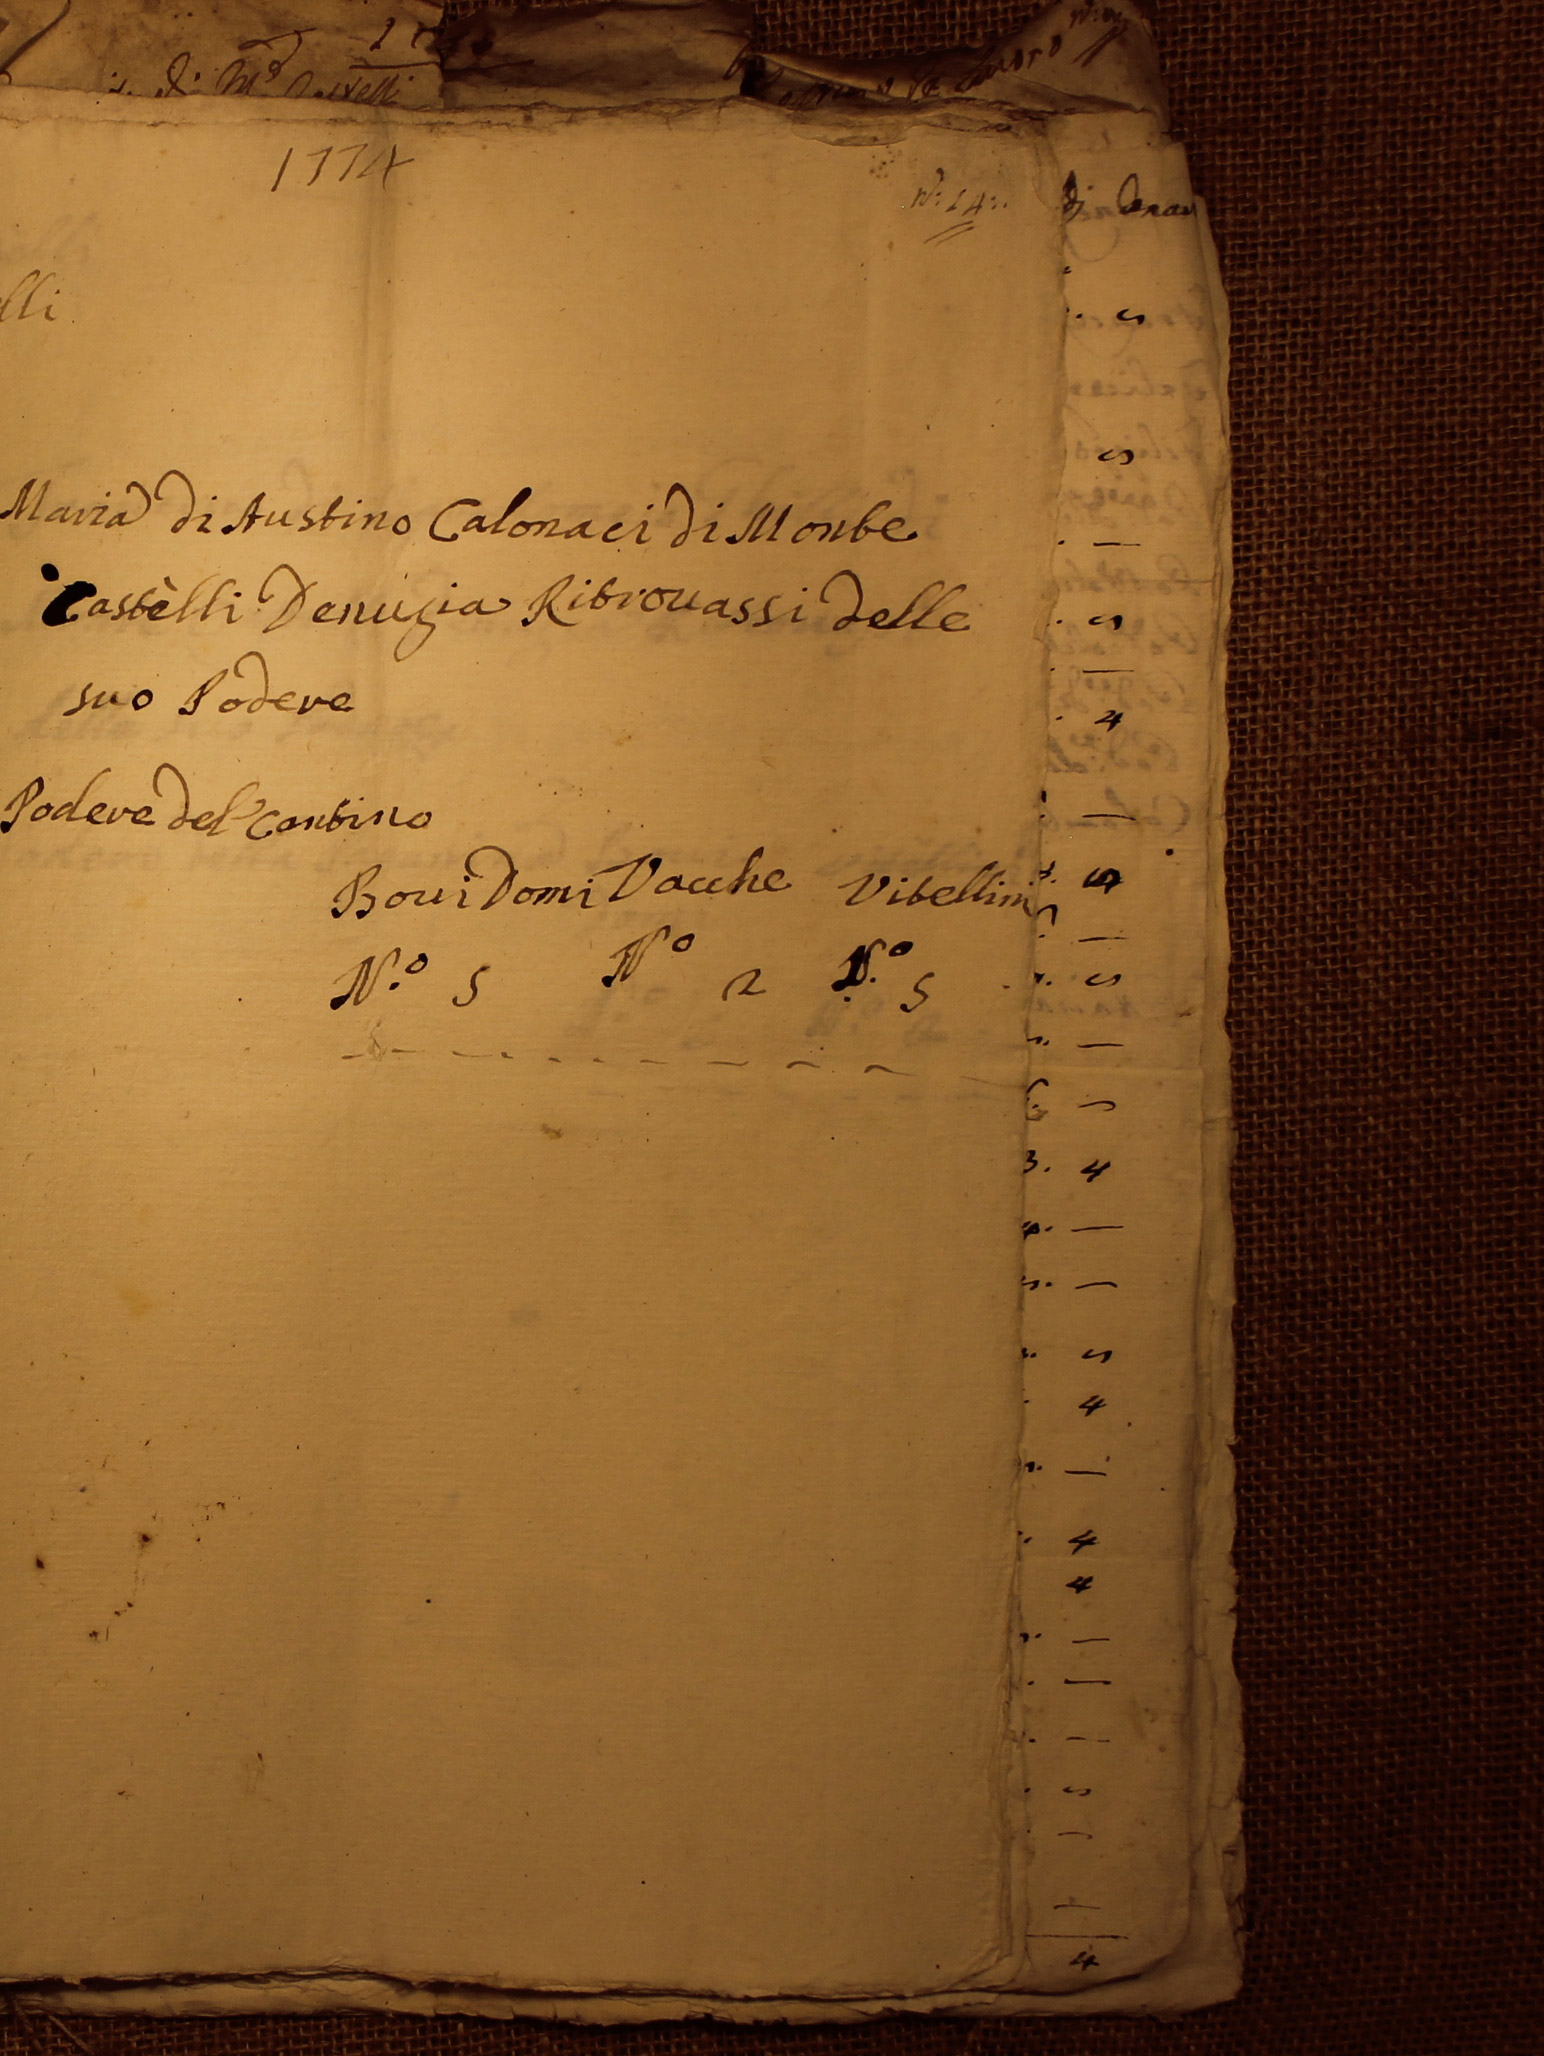 1774
N: 14:.
lli
Maria di Austino Calonaci di Monte
Castèlli Denuzia Ritrouassi delle
suo Podere
Podere del' Cantino
Boui Domi Vacche Vitellini
N.o 5 No 2 N.o 5
di
5
5
—
5
—
4
—
5
—
5
—
—
3. 4
—
—
5
4
—
4
4
—
—
—
5
—
—
4